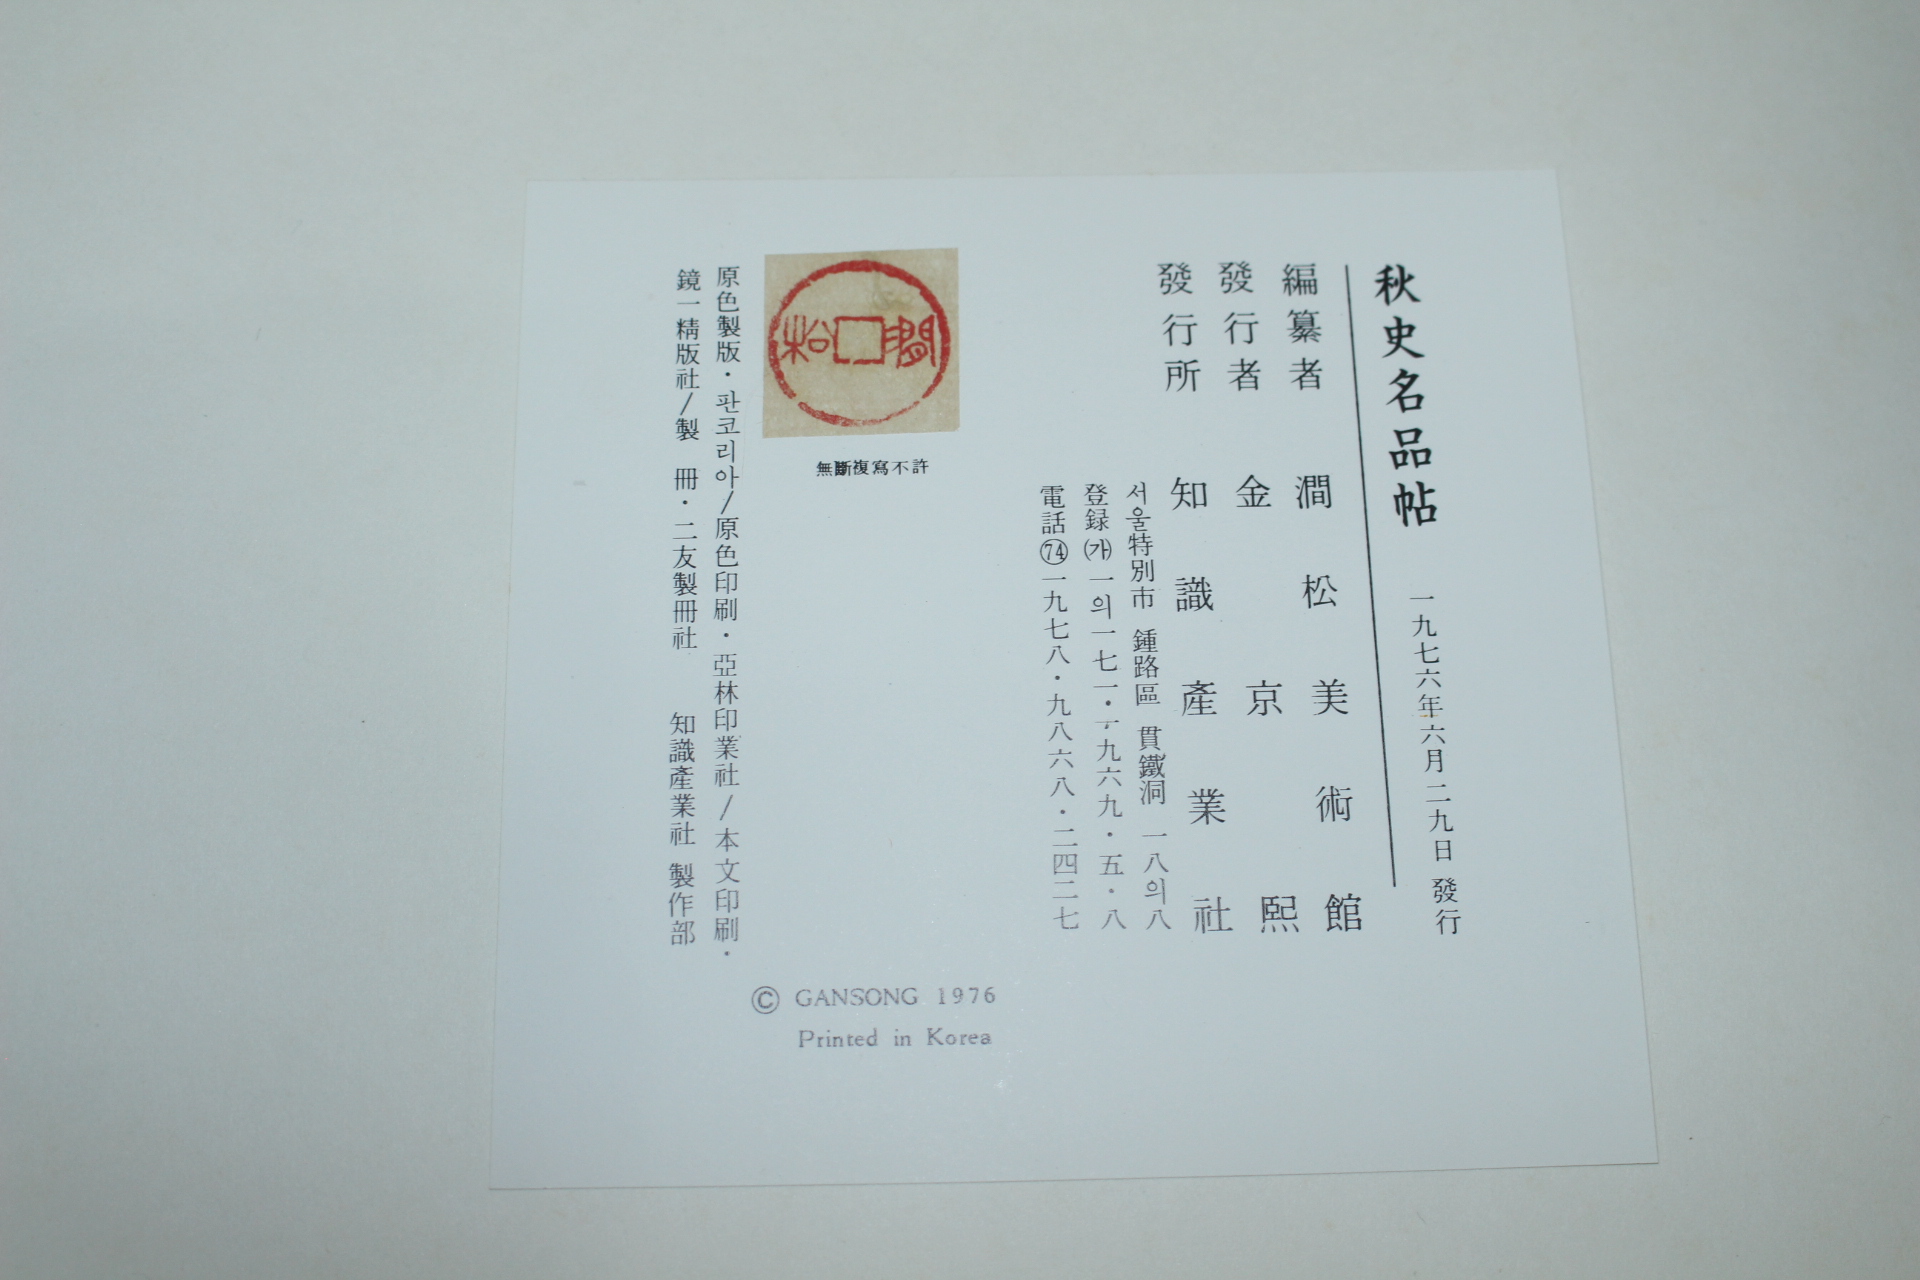 秋史名品帖
一九七六年六月二九日 發行
編纂者 澗松美術館
發行者 金京熙
發行所 知識產業社
서울特別市 鍾路區 貫鐵洞 一八의八
登録㈎一의一七一・一九六九・五・八
電話㉔一九七八・九八六八・二四二七
澗松
無斷複寫不許
原色製版・판코리아/原色印刷・亞林印業社/本文印刷・
鏡一精版社/製 冊・二友製冊社 知識產業社 製作部
© GANSONG 1976
Printed in Korea